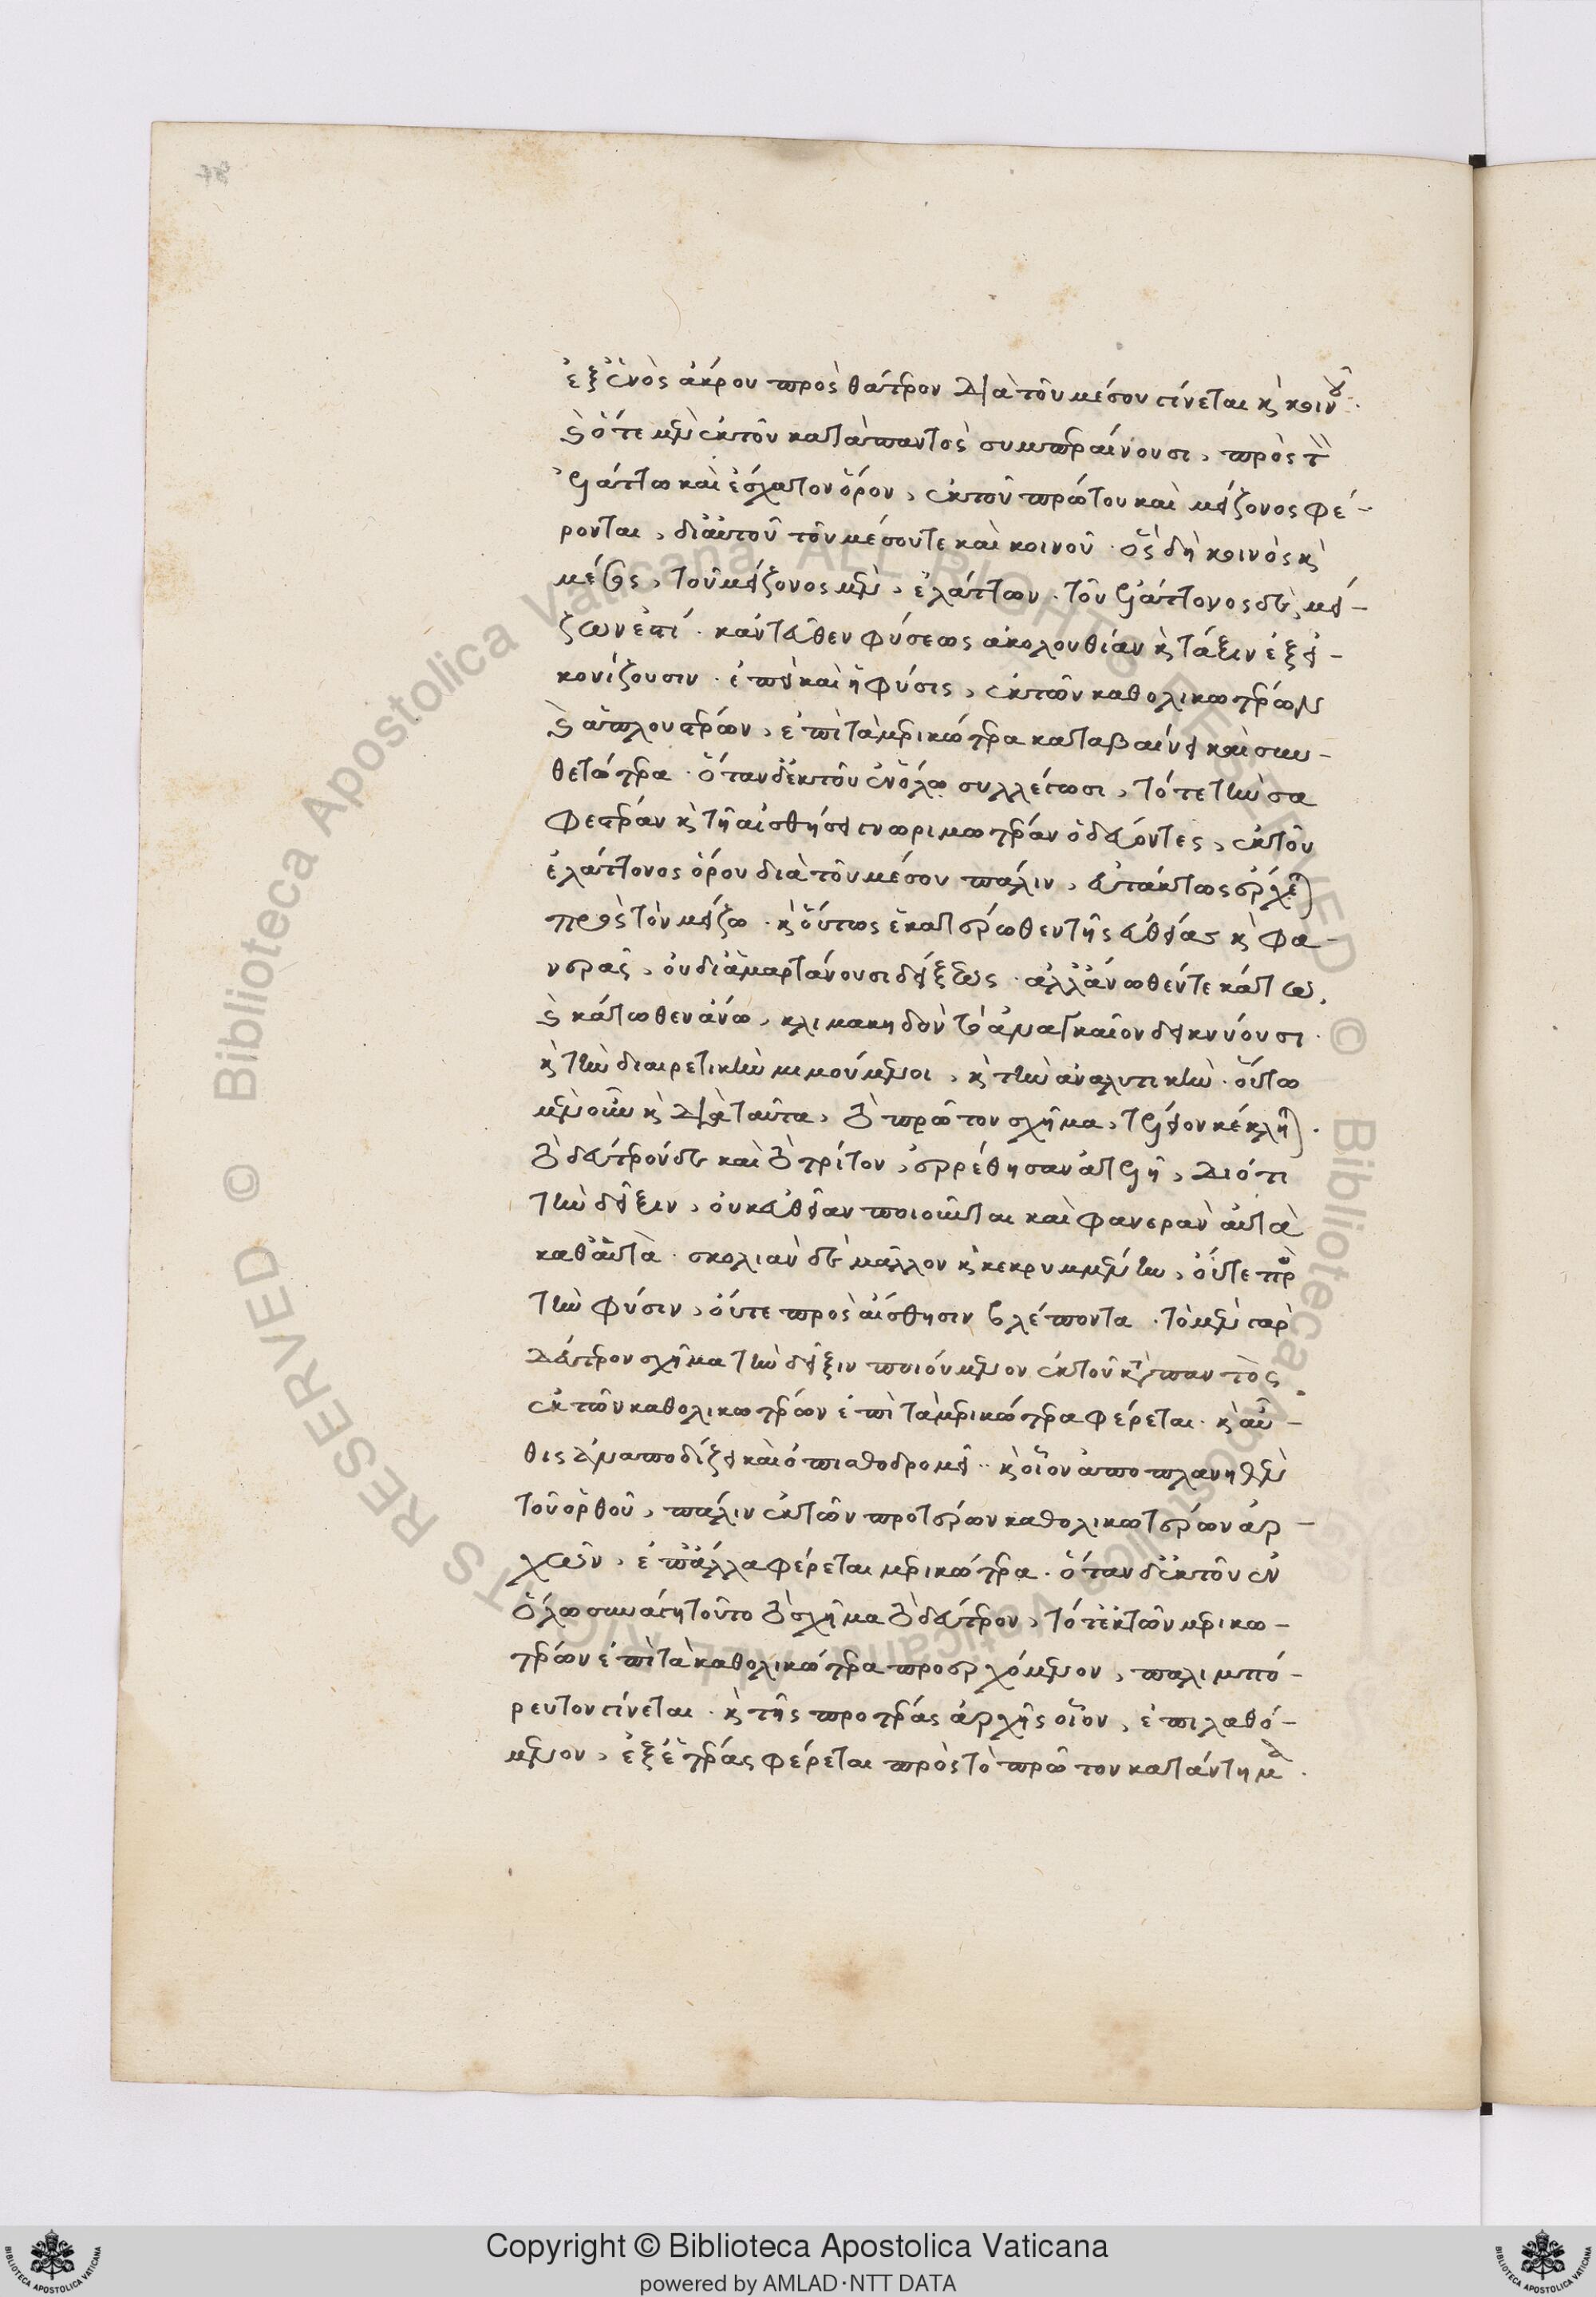 ἐξ ἑνὸς ἄκρου πρὸς θάτερον διὰ τοῦ μέσου γίνεται κ κοινοῦ.
κ ὅτε μὲν ἐκ τοῦ κατὰ παντὸς συμπεραίνουσι, πρὸς τὸν
ἐλάττω καὶ ἔσχατον ὅρον, ἐκ τοῦ πρώτου καὶ μείζονος φέ-
ρονται, δι' αὐτοῦ τοῦ μέσου τε καὶ κοινοῦ. ὃς δὴ κοινὸς κ
μέσος, τοῦ μείζονος μὲν, ἐλάττων. τοῦ ἐλάττονος δὲ, μεί-
ζων ἐστί. κἀντεῦθεν φύσεως ἀκολουθίαν κ τάξιν ἐξει-
κονίζουσιν. ἐπεὶ καὶ ἡ φύσις, ἐκ τῶν καθολικωτέρων
κ ἁπλουστέρων, ἐπὶ τὰ μερικώτερα καταβαίνει καὶ συν-
θετώτερα. ὅταν δ' ἐκ τοῦ ἐν ὅλῳ συλλέγωσι, τότε τὴν σα
φεστέραν κ τῇ αἰσθήσει γνωριμωτέραν ὁδεύοντες, ἐκ τοῦ
ἐλάττονος ὅρου διὰ τοῦ μέσου πάλιν, εὐτάκτως ἔρχεται
πρὸς τὸν μείζω. κ οὕτως ἑκατέρωθεν τῆς εὐθείας κ φα-
νερᾶς, οὐ διαμαρτάνουσι δείξεως. ἀλλ' ἄνωθέν τε κάτω,
κ κάτωθεν ἄνω, κλιμακηδὸν τὸ ἀναγκαῖον δεικνύουσι.
κ τὴν διαιρετικὴν μιμούμενοι, κ τὴν ἀναλυτικήν. οὕτω
μὲν οὖν κ διὰ ταῦτα, τὸ πρῶτον σχῆμα, τέλειον κέκληται.
τὸ δεύτερον δὲ καὶ τὸ τρίτον, ἐρρέθησαν ἀτελῆ, διότι
τὴν δεῖξιν, οὐκ εὐθεῖαν ποιοῦνται καὶ φανερὰν αὐτὰ
καθ' αὑτά. σκολιὰν δὲ μᾶλλον κ κεκρυμμένην, οὔτε πρὸς
τὴν φύσιν, οὔτε πρὸς αἴσθησιν βλέποντα. τὸ μὲν γὰρ
δεύτερον σχῆμα τὴν δεῖξιν ποιούμενον ἐκ τοῦ κατὰ παντὸς
ἐκ τῶν καθολικωτέρων ἐπὶ τὰ μερικώτερα φέρεται. κ αὖ-
θις ἀναποδίζει καὶ ὀπισθοδρομεῖ. κ οἷον ἀποπλανηθὲν
τοῦ ὀρθοῦ, πάλιν ἐκ τῶν προτέρων καθολικωτέρων ἀρ-
χῶν, ἐπ' ἄλλα φέρεται μερικώτερα. ὅταν δ' ἐκ τοῦ ἐν
ὅλῳ συνάγῃ τοῦτο τὸ σχῆμα τὸ δεύτερον, τότ' ἐκ τῶν μερικω-
τέρων ἐπὶ τὰ καθολικώτερα προσερχόμενον, παλιμπό-
ρευτον γίνεται. κ τῆς προτέρας ἀρχῆς οἷον, ἐπιλαθό-
μενον, ἐξ ἑτέρας φέρεται πρὸς τὸ πρῶτον κατάντημα.